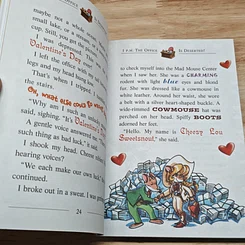 maybe not a whole
small lake, or a
cup. Still, you get the
I was depressed. The
Valentine's Day
I left the office with my
leg and my heart
That's when I tripped
the stairs.
Oh, what else could go wrong?
"Why am I such an
said, sighing. "It's Valentine's
A gentle voice answered me,
such thing as bad luck," it said.
I shook my head. Cheese
hearing voices?
"We each make our own luck,"
continued.
I broke out in a sweat. I was
24
I AM THE OFFICE IS DESERTED!
to check myself into the Mad Mouse Center
when I saw her. She was a CHARMING
rodent with light blue eyes and blond
fur. She was dressed like a cowmouse in
white leather. Around her waist, she wore
a belt with a silver heart-shaped buckle. A
wide-rimmed COWMOUSE hat was
perched on her head. Spiffy BOOTS
adorned her feet.
"Hello. My name is Cheesy Lou
Sweetsnout," she said.